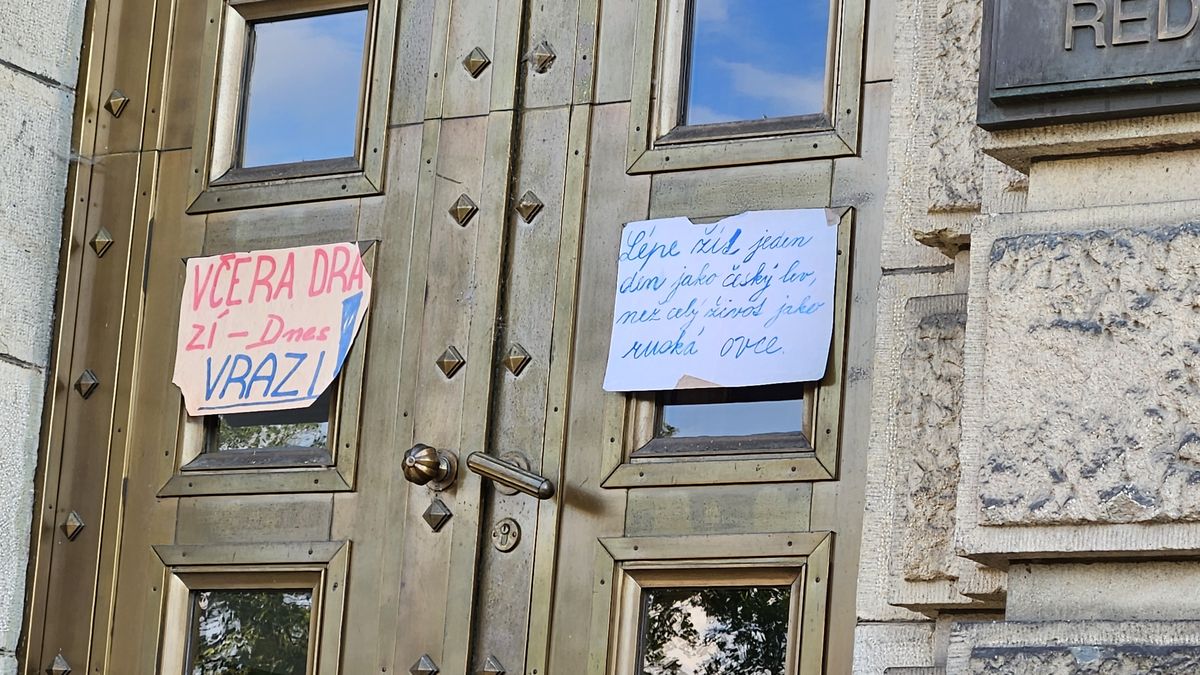 VČERA DRA
ZÍ - Dnes
VRAZI!
Lépe žít jeden
den jako český lev,
než celý život jako
ruská ovce.
RED